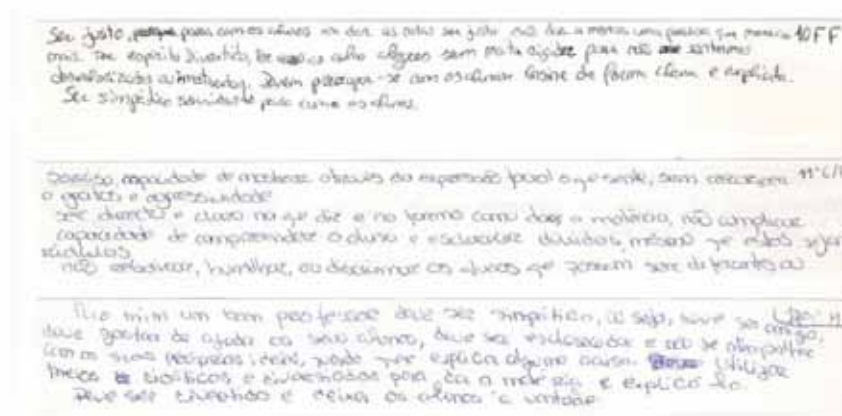 Ser justo, para com os alunos ao dar as notas ser justo não dar a menos uma pessoa que merecia 10FF
mais. Ter espírito divertido, dar aulas alegres sem muita rigidez para não estarmos
desmoralizados Devem preocupar-se com os alunos. Ensine de forma clara e explícita.
Ser simpático para com os alunos.
Sorriso, capacidade de mostrar através da expressão facial o que sente, sem 11º
o gritos e agressividade
ser directo e claro no que diz e na forma como dá a matéria, não complicar
capacidade de compreender o aluno e esclarecer dúvidas, mesmo que estas sejam
ridículas
não humilhar, ou discriminar os alunos que possam ser diferentes ou
Pra mim um bom professor deve ser simpático, ou seja, deve ser amigo,
deve gostar de ajudar os seus alunos, deve ser esclarecedor e
com as suas próprias ideias, sempre que explica alguma coisa. Utilizar
meios e diversificados para dar a matéria e explicá-la.
Deve ser divertido e deixar os alunos à vontade.